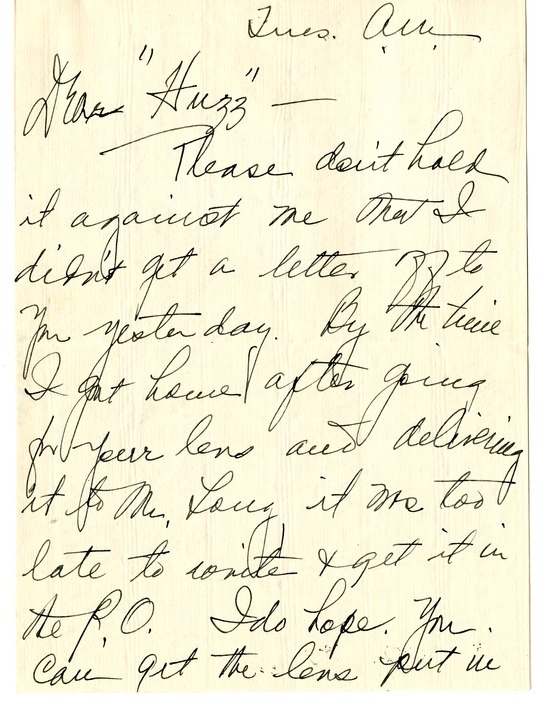 Tues. A.M.
Dear "Huzz" —
Please don't hold
it against me that I
didn't get a letter off to
you yesterday. By the time
I got home after going
for your lens and delivering
it to Mr. Long it was too
late to write & get it in
the P.O. I do hope. You.
can get the lens put in